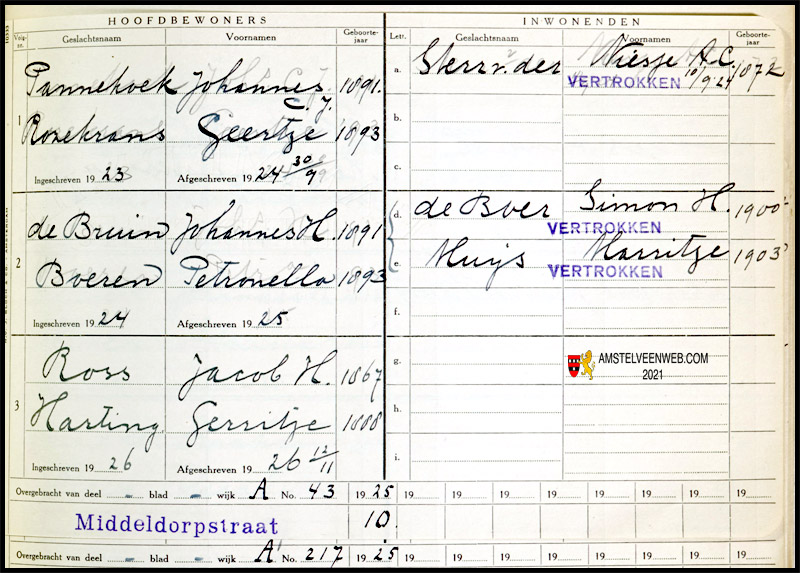 HOOFDBEWONERS INWONENDEN
Volg-nr. Geslachtsnaam Voornamen Geboorte-jaar Lett. Geslachtsnaam Voornamen Geboorte-jaar
1 Pannekoek Johannes C.J. 1891. a. Sterr v. der Wiesje A.C. 1872
VERTROKKEN 10/9'24
b.
Rozekrans Geertje 1893
c.
Ingeschreven 19 23 Afgeschreven 19 24 30/9
de Bruin Johannes H. 1891 d. de Boer Simon H. 1900
VERTROKKEN
2 Boeren Petronella 1893 e. Muys Marritje 1903
VERTROKKEN
f.
Ingeschreven 19 24 Afgeschreven 19 25
3 Ross Jacob H. 1867 g.
AMSTELVEENWEB.COM
2021
Harting Gerritje 1888 h.
i.
Ingeschreven 19 26 Afgeschreven 19 26 12/11
Overgebracht van deel - blad - wijk A No. 43 19 25 19 19 19 19 19 19 19 19
Middeldorpstraat 10.
Overgebracht van deel - blad - wijk A No. 217 19 25 19 19 19 19 19 19 19 19